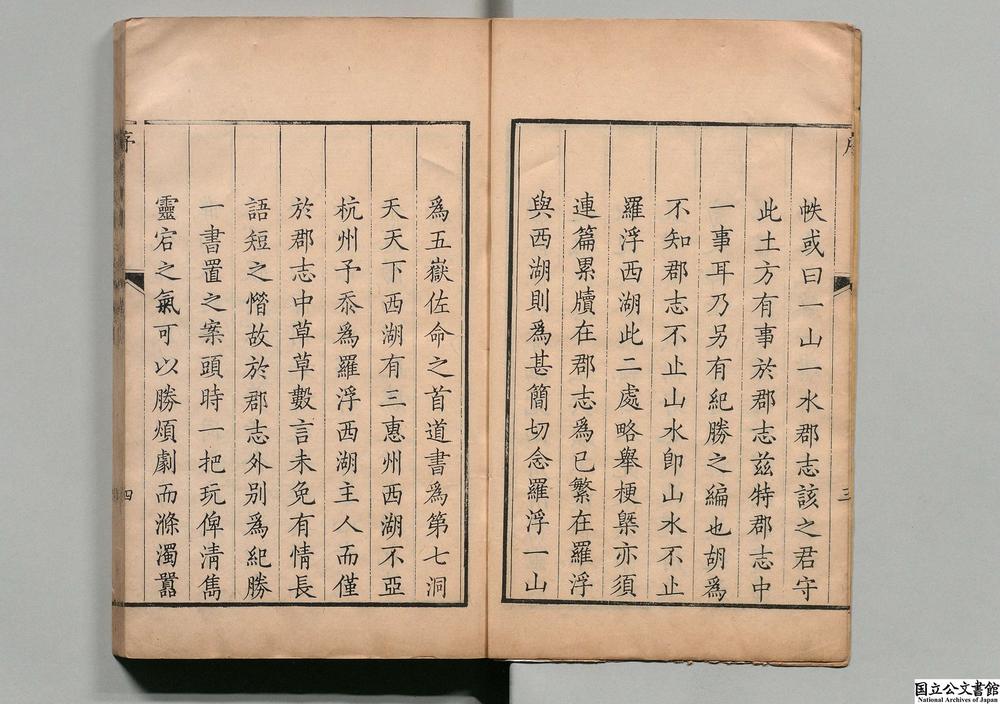 帙或曰一山一水郡志該之君守
此土方有事於郡志茲特郡志中
一事耳乃另有紀勝之編也胡爲
不知郡志不止山水卽山水不止
羅浮西湖此二處略舉梗槩亦須
連篇累牘在郡志爲已繁在羅浮
與西湖則爲甚簡切念羅浮一山
序
三
爲五嶽佐命之首道書爲第七洞
天天下西湖有三惠州西湖不亞
杭州予忝爲羅浮西湖主人而僅
於郡志中草草數言未免有情長
語短之憯故於郡志外別爲紀勝
一書置之案頭時一把玩俾淸雋
靈宕之氣可以勝煩劇而滌濁囂
序
四
国立公文書館
National Archives of Japan